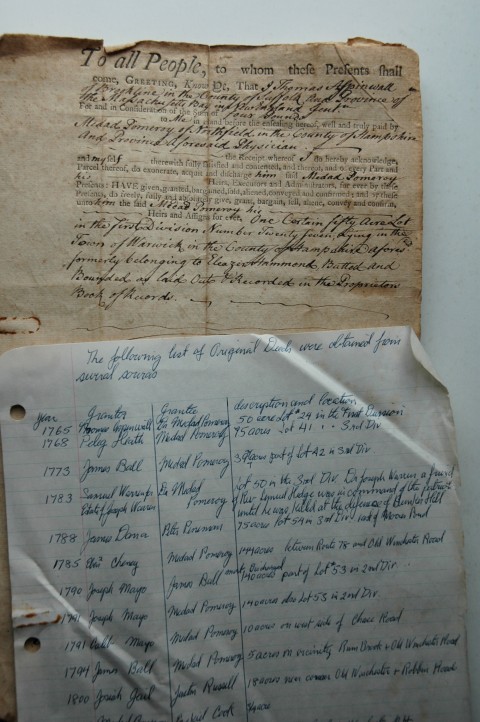 To all People, to whom these Presents shall
come, GREETING, Know Ye, That I Thomas Aspinwall
of Brookline, in the County of Suffolk and Province of
the Massachusetts Bay in New England Gentn
For and in Consideration of the Sum of four Pounds
To Me in Hand before the ensealing hereof, well and truly paid by
Medad Pomeroy of Northfield in the County of Hampshire
And Province aforesaid Physician
the Receipt whereof I do hereby acknowledge,
and myself therewith fully satisfied and contented, and thereof, and of every Part and
Parcel thereof, do exonerate, acquit and discharge him said Medad Pomeroy
his Heirs, Executors and Administrators, for ever by these
Presents: HAVE given, granted, bargained, sold, aliened, conveyed and confirmed; and by these
Presents, do freely, fully and absolutely give, grant, bargain, sell, aliene, convey and confirm,
unto him the said Medad Pomeroy his
Heirs and Assigns for ever, One Certain fifty Acre Lot
in the first Division Number Twenty lying in the
Town of Warwick in the County of Hampshire afores
formerly belonging to Eleazer Hammond Butted and
Bounded as laid Out & Recorded in the Proprietors
Book of Records.
The following list of Original Deeds were obtained from
several sources
year Grantor Grantee description and location
1765 Thomas Aspinwall Dr Medad Pomeroy 50 acre Lot #24 in the First Division
1768 Peleg Heath Medad Pomeroy 75 acres Lot 41 3rd Div
1773 James Ball Medad Pomeroy part of Lot 42 in 3rd Div
1783 Samuel Dr Medad Pomeroy lot 50 in the 3rd Div Dr Joseph Warren a friend
Estate of Joseph Warren of Rev Lemuel Hedge was in command of the patriots
until he was killed at the defense of Bunker Hill
1788 James Dana 75 acres lot 54 in 3rd Div east of Moore Pond
1785 Cheney Medad Pomeroy 144 acres between Route 78 and Old Winchester Road
1790 Joseph Mayo James Ball 140 acres part of Lot #53 in 2nd Div
1791 Joseph Mayo Medad Pomeroy 140 acres also Lot 53 in 2nd Div
1791 Caleb Mayo Medad Pomeroy 10 acres on west side of Chace Road
1794 James Ball Medad Pomeroy 5 acres on vicinity Rum Brook & Old Winchester Road
1800 Josiah Gail Justin Russell 18 acres near corner Old Winchester & Robbins Road
Cook